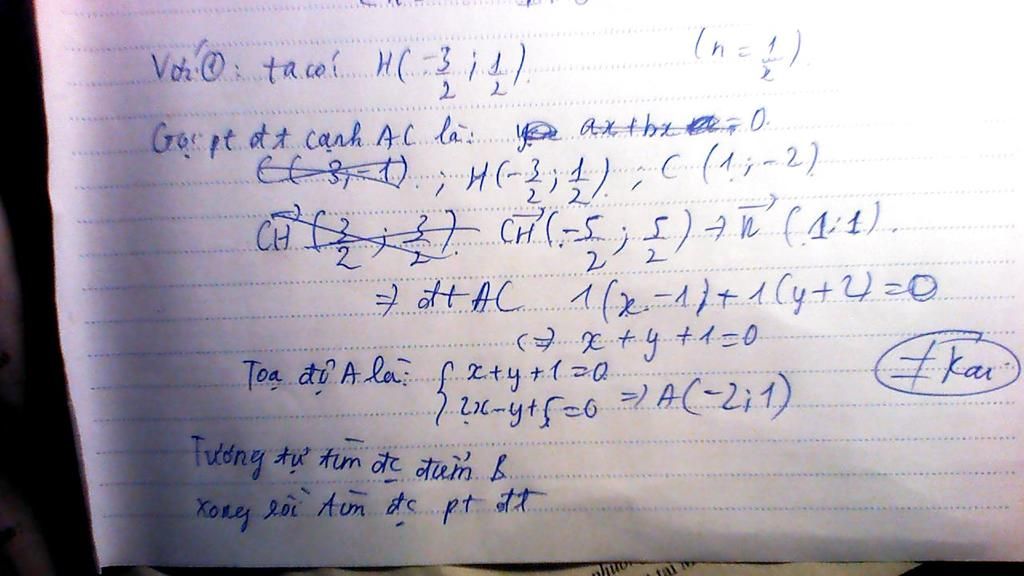 Với ①: ta có: H(-3/2; 1/2). (n = 1/2).
Gọi pt đt cạnh AC là: ax+bx = 0.
C(-3;-1). ; H(-3/2; 1/2) ; C (1; -2)
CH→ (3/2; -3/2) CH→ (-5/2; 5/2) → n→ (1;1).
=> đt AC 1(x-1)+1(y+2)=0
<=> x+y+1=0
Toạ độ A là: { x+y+1=0
2x-y+5=0 => A(-2;1)
Tương tự tìm đc điểm B
xong rồi tìm đc pt đt